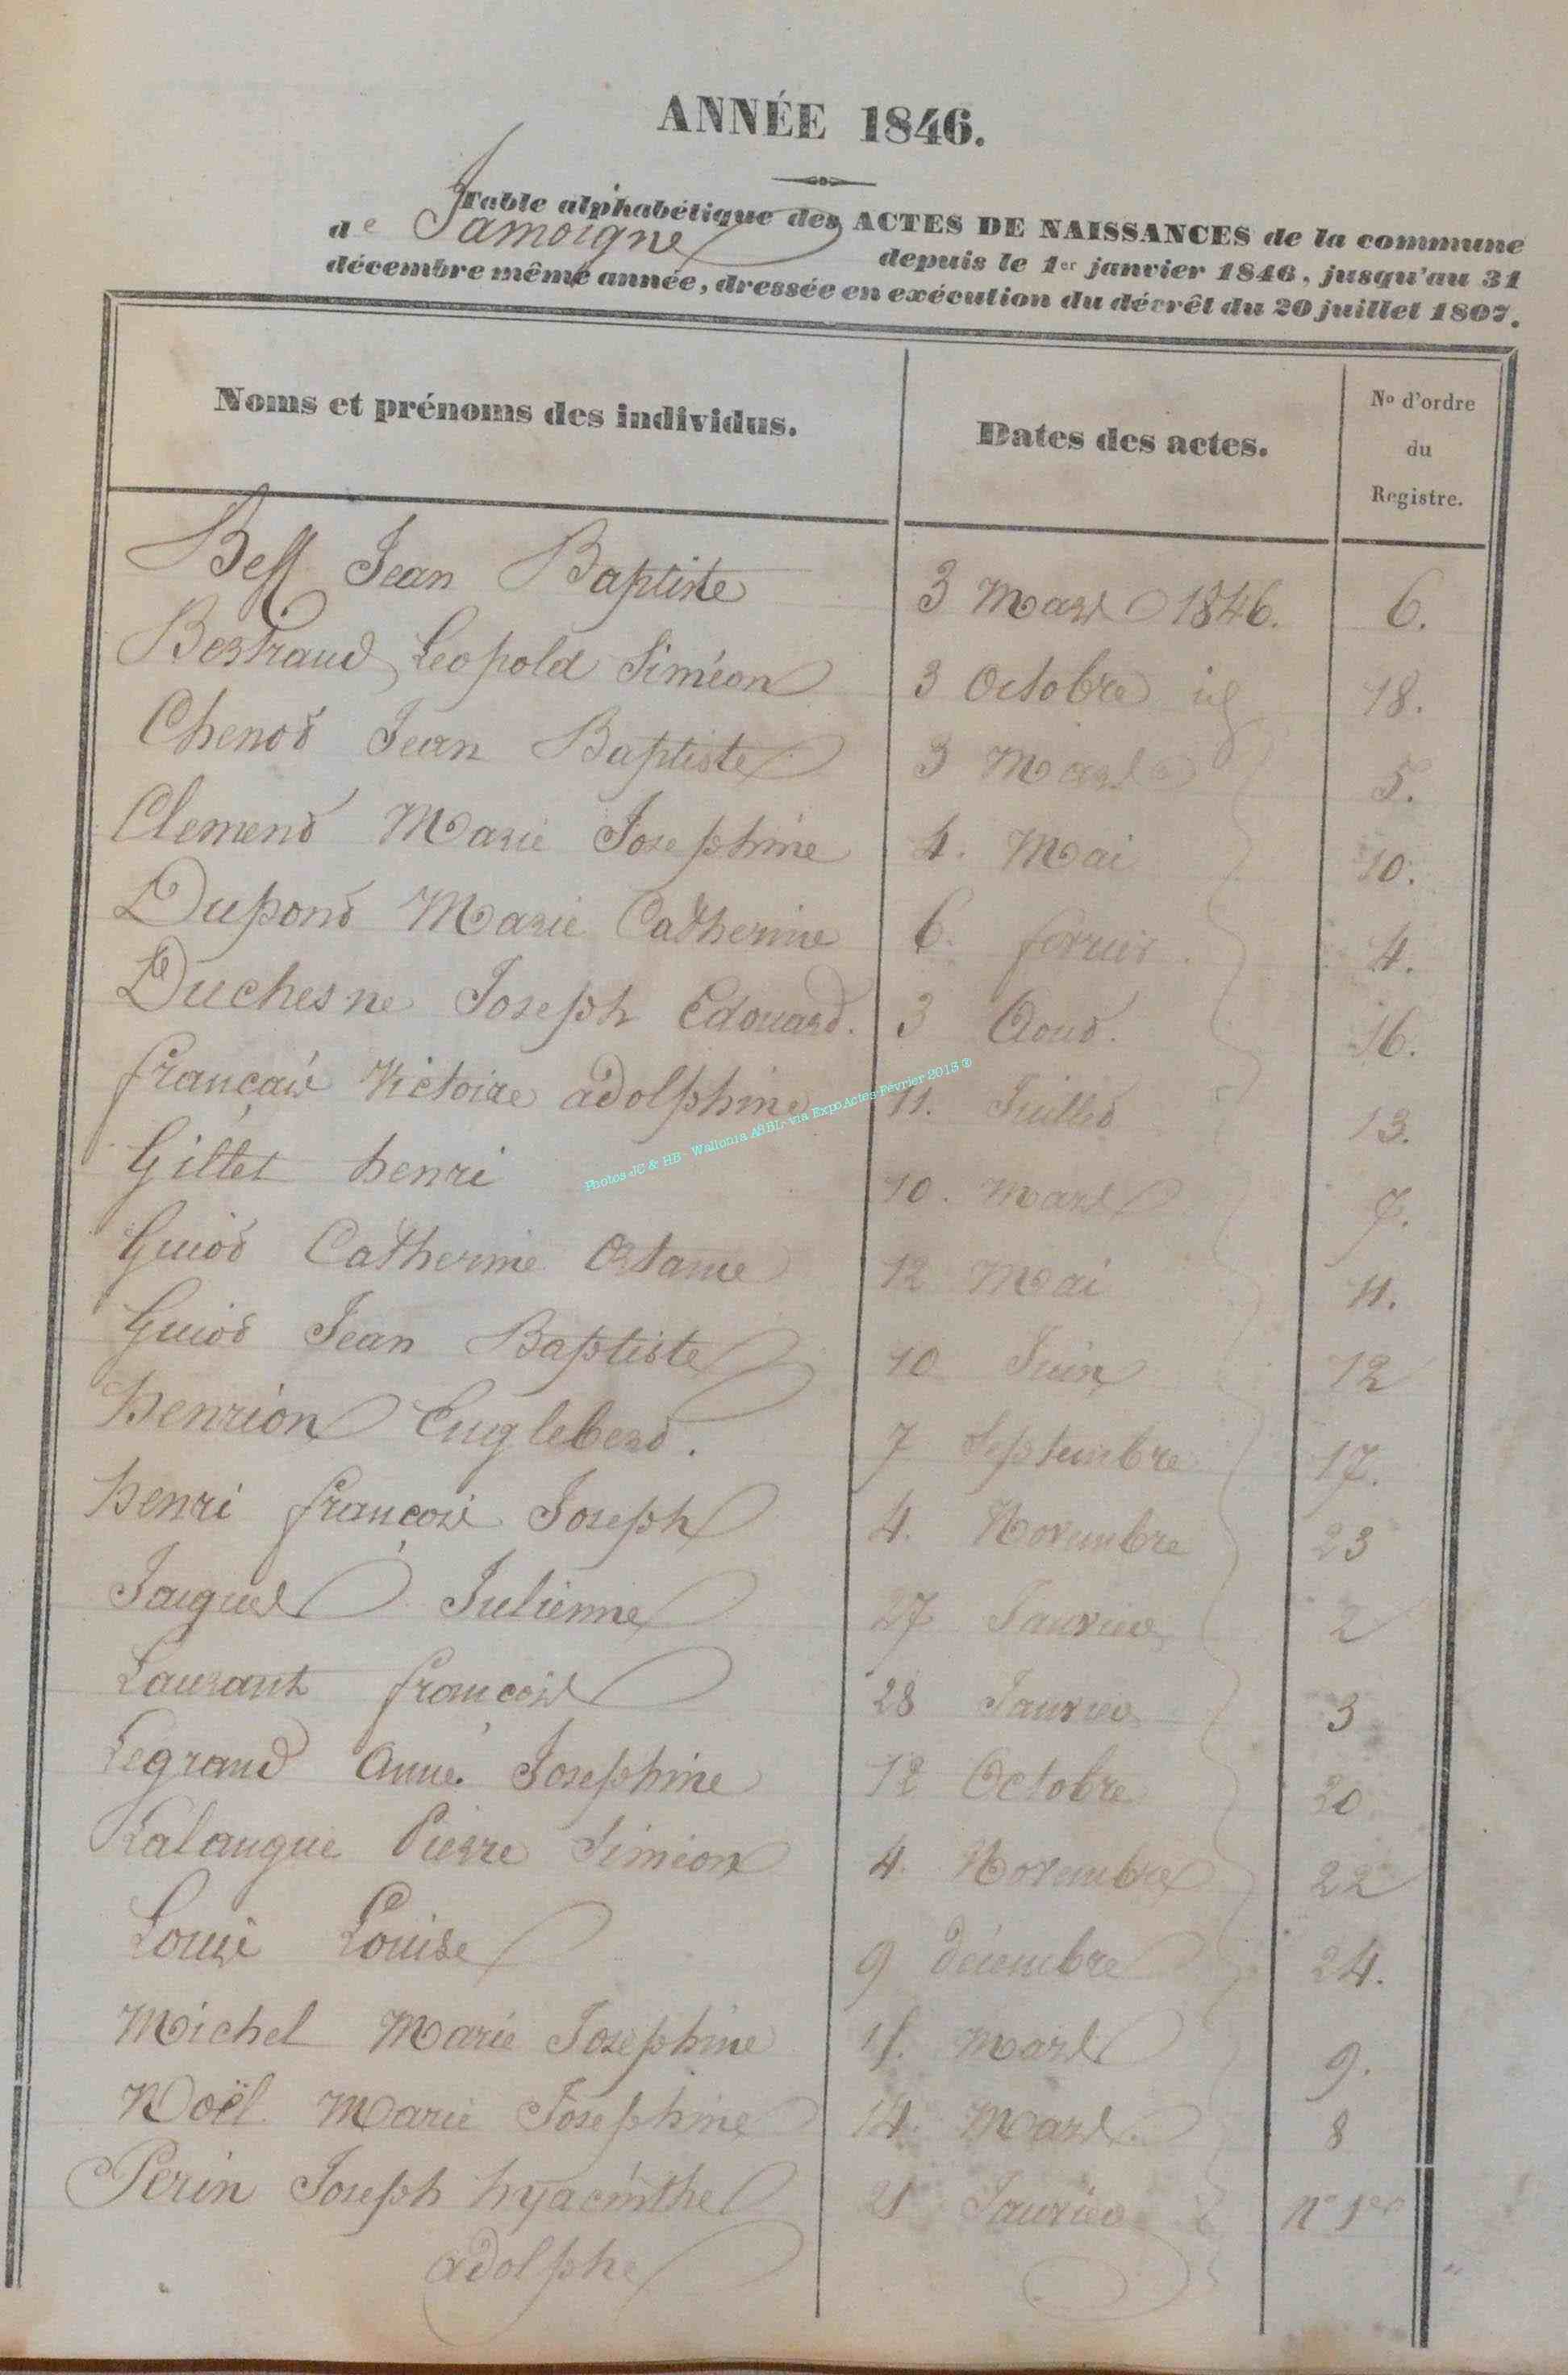 ANNÉE 1846.
Table alphabétique des ACTES DE NAISSANCES de la commune
de Jamoigne depuis le 1er janvier 1846, jusqu'au 31
décembre même année, dressée en exécution du décrêt du 20 juillet 1807.
Noms et prénoms des individus. Dates des actes. No d'ordre du Registre.
Jean Baptiste 3 Mars 1846. 6.
Bertrand Leopold Siméon 3 Octobre id 18.
Chenot Jean Baptiste 3 Mars 5.
Clement Marie Josephine 4. Mai 10.
Dupont Marie Catherine 6. 4.
Duchesne Joseph Edouard. 3 Aout. 16.
français Victoire adolphine 11. Juillet 13.
Photos JC & HB - Wallonia ASBL - via ExpoActes Février 2015 ®
Gillet henri 10. Mars 7.
Guiot Catherine 12 Mai 11.
Guiot Jean Baptiste 10 Juin 12
henrion Englebert. 7 Septembre 17.
henri françois Joseph 4. Novembre 23
Julienne 27 Janvier 2
Laurant françois 28 Janvier 3
Legrand Anne Josephine 12 Octobre 20
Lalangue Pierre Siméon 4. Novembre 22
Louis Louise 9 décembre 24.
Michel Marie Josephine Mars 9.
Noël Marie Josephine 14. Mars 8
Perin Joseph hyacinthe 21 Janvier no 1er
adolphe